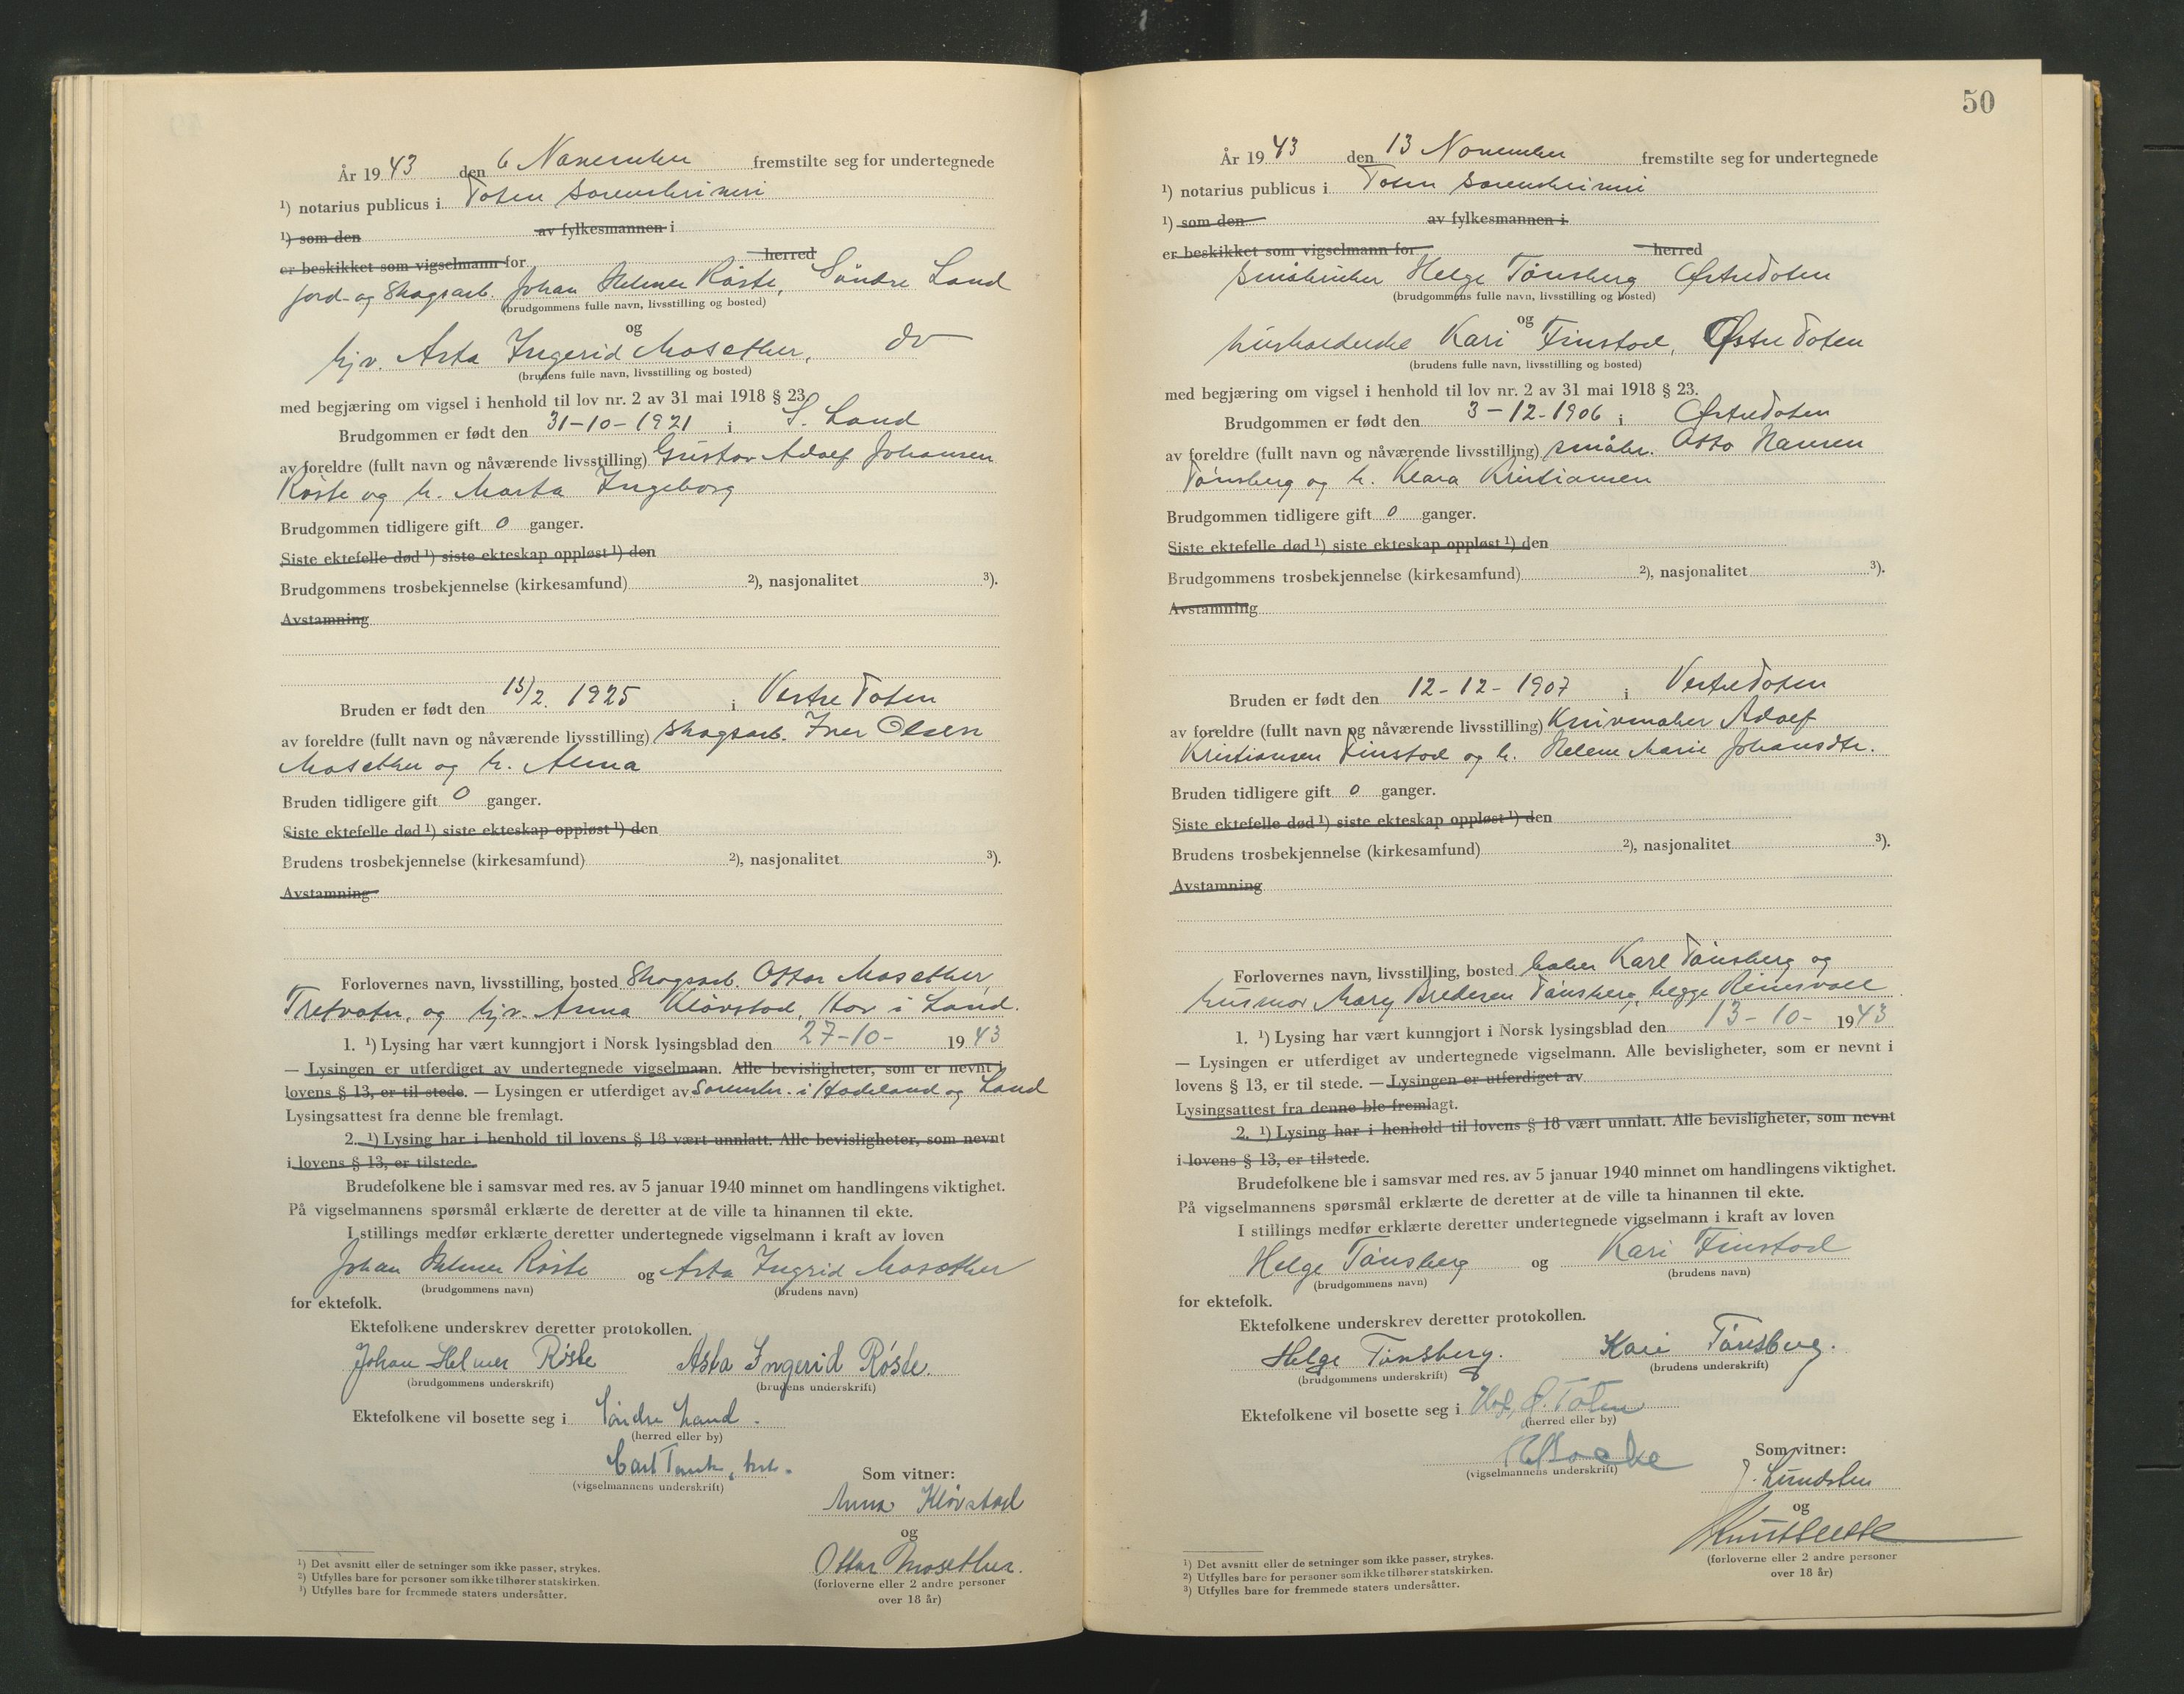 År 1943 den 6 November fremstilte seg for undertegnede
¹) notarius publicus i Toten sorenskriveri
¹) som den av fylkesmannen i
er beskikket som vigselmann for herred
jord- og skogsarb. Johan Helmer Røste, Søndre Land
(brudgommens fulle navn, livsstilling og bosted)
og
hj.v. Asta Ingerid Mosether, do
(brudens fulle navn, livsstilling og bosted)
med begjæring om vigsel i henhold til lov nr. 2 av 31 mai 1918 § 23.
Brudgommen er født den 31-10-1921 i S. Land
av foreldre (fullt navn og nåværende livsstilling) Gustav Adolf Johansen
Røste og h. Marta Ingeborg
Brudgommen tidligere gift 0 ganger.
Siste ektefelle død ¹) siste ekteskap oppløst ¹) den
Brudgommens trosbekjennelse (kirkesamfund) ²), nasjonalitet ³).
Avstamning
Bruden er født den 15/2. 1925 i Vestre Toten
av foreldre (fullt navn og nåværende livsstilling) skogsarb. Iver Olsen
Mosether og h. Alma
Bruden tidligere gift 0 ganger.
Siste ektefelle død ¹) siste ekteskap oppløst ¹) den
Brudens trosbekjennelse (kirkesamfund) ²), nasjonalitet ³).
Avstamning
Forlovernes navn, livsstilling, bosted Skogsarb. Ottar Mosether,
Tretvatn, og hj.v. Anna Kløvstad, Hov i Land.
1. ¹) Lysing har vært kunngjort i Norsk lysingsblad den 27-10- 1943
— Lysingen er utferdiget av undertegnede vigselmann. Alle bevisligheter, som er nevnt i
lovens § 13, er til stede. — Lysingen er utferdiget av Sorenskr. i Hadeland og Land
Lysingsattest fra denne ble fremlagt.
2. ¹) Lysing har i henhold til lovens § 18 vært unnlatt. Alle bevisligheter, som nevnt
i lovens § 13, er tilstede.
Brudefolkene ble i samsvar med res. av 5 januar 1940 minnet om handlingens viktighet.
På vigselmannens spørsmål erklærte de deretter at de ville ta hinannen til ekte.
I stillings medfør erklærte deretter undertegnede vigselmann i kraft av loven
Johan Helmer Røste og Asta Ingrid Mosether
(brudgommens navn) (brudens navn)
for ektefolk.
Ektefolkene underskrev deretter protokollen.
Johan Helmer Røste Asta Ingerid Røste.
(brudgommens underskrift) (brudens underskrift)
Ektefolkene vil bosette seg i Søndre Land.
(herred eller by)
Carl
(vigselmannens underskrift)
Som vitner:
Anna Kløvstad
og
Ottar Mosether.
(forloverne eller 2 andre personer
over 18 år)
¹) Det avsnitt eller de setninger som ikke passer, strykes.
²) Utfylles bare for personer som ikke tilhører statskirken.
³) Utfylles bare for fremmede staters undersåtter.
50
År 1943 den 13 November fremstilte seg for undertegnede
¹) notarius publicus i Toten sorenskriveri
¹) som den av fylkesmannen i
er beskikket som vigselmann for herred
småbruker Helge Tønsberg Østre Toten
(brudgommens fulle navn, livsstilling og bosted)
og
husholderske Kari Finstad, Østre Toten
(brudens fulle navn, livsstilling og bosted)
med begjæring om vigsel i henhold til lov nr. 2 av 31 mai 1918 § 23.
Brudgommen er født den 3-12-1906 i Østre Toten
av foreldre (fullt navn og nåværende livsstilling) småbr. Otto Hansen
Tønsberg og h. Klara Kristiansen
Brudgommen tidligere gift 0 ganger.
Siste ektefelle død ¹) siste ekteskap oppløst ¹) den
Brudgommens trosbekjennelse (kirkesamfund) ²), nasjonalitet ³).
Avstamning
Bruden er født den 12-12-1907 i Vestre Toten
av foreldre (fullt navn og nåværende livsstilling) Knivmaker Adolf
Kristiansen Finstad og h. Helene Marie Johansdtr.
Bruden tidligere gift 0 ganger.
Siste ektefelle død ¹) siste ekteskap oppløst ¹) den
Brudens trosbekjennelse (kirkesamfund) ²), nasjonalitet ³).
Avstamning
Forlovernes navn, livsstilling, bosted baker Karl Tønsberg og
husmor Mary Bredesen Tønsberg, begge Reinsvoll
1. ¹) Lysing har vært kunngjort i Norsk lysingsblad den 13-10- 1943
— Lysingen er utferdiget av undertegnede vigselmann. Alle bevisligheter, som er nevnt i
lovens § 13, er til stede. — Lysingen er utferdiget av
Lysingsattest fra denne ble fremlagt.
2. ¹) Lysing har i henhold til lovens § 18 vært unnlatt. Alle bevisligheter, som nevnt
i lovens § 13, er tilstede.
Brudefolkene ble i samsvar med res. av 5 januar 1940 minnet om handlingens viktighet.
På vigselmannens spørsmål erklærte de deretter at de ville ta hinannen til ekte.
I stillings medfør erklærte deretter undertegnede vigselmann i kraft av loven
Helge Tønsberg og Kari Finstad
(brudgommens navn) (brudens navn)
for ektefolk.
Ektefolkene underskrev deretter protokollen.
Helge Tønsberg. Kari Tønsberg.
(brudgommens underskrift) (brudens underskrift)
Ektefolkene vil bosette seg i Hof, Ø. Toten
(herred eller by)
(vigselmannens underskrift)
Som vitner:
J. Lundsten
og
(forloverne eller 2 andre personer
over 18 år)
¹) Det avsnitt eller de setninger som ikke passer, strykes.
²) Utfylles bare for personer som ikke tilhører statskirken.
³) Utfylles bare for fremmede staters undersåtter.